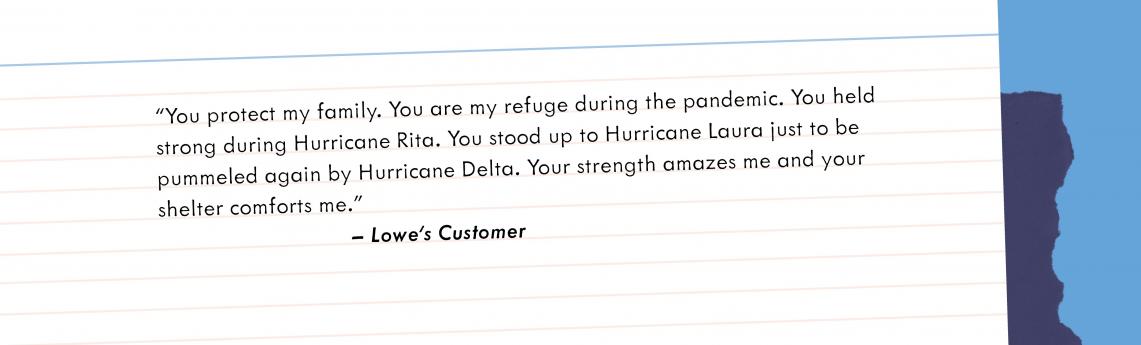 “You protect my family. You are my refuge during the pandemic. You held
strong during Hurricane Rita. You stood up to Hurricane Laura just to be
pummeled again by Hurricane Delta. Your strength amazes me and your
shelter comforts me.”
– Lowe’s Customer